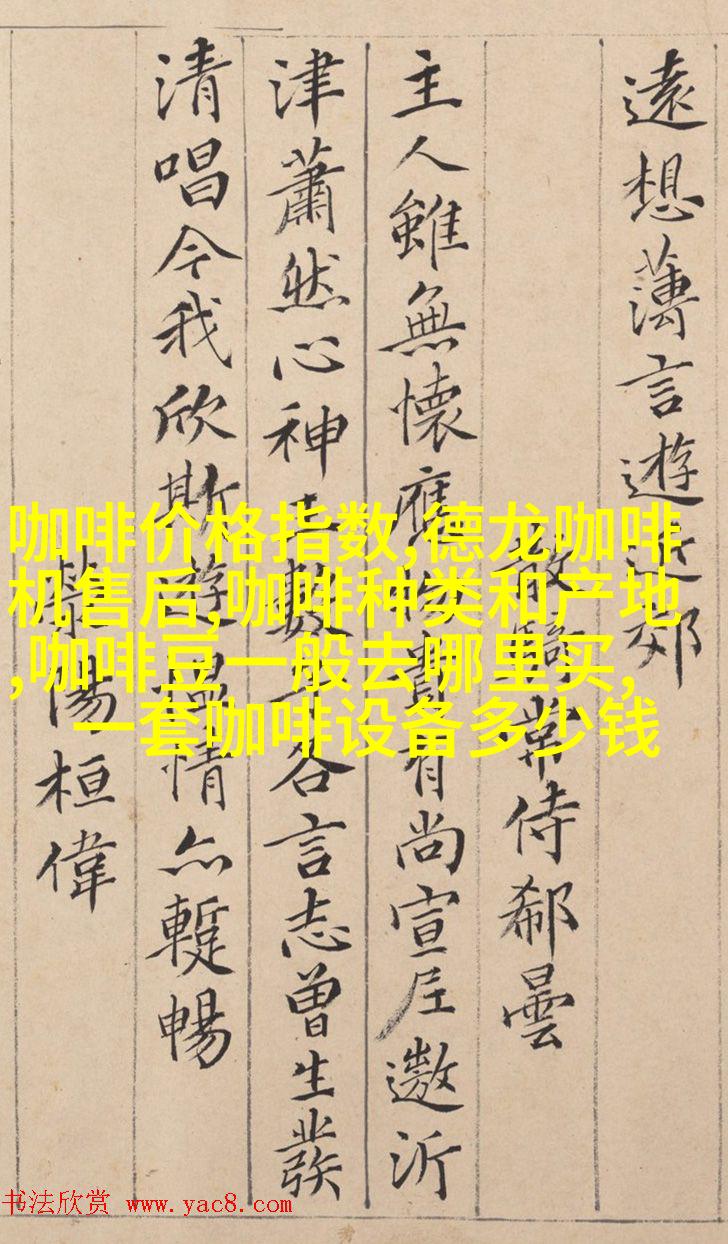 遠想薄言遊近郊
散騎常侍郗曇
主人雖無懷應物貴有尚宣尼遨沂
津蕭然心神王數子各言志曾生發
清唱今我欣斯遊慍情亦暫暢
滎陽桓偉
咖啡价格指数,德龙咖啡
机售后,咖啡种类和产地
,咖啡豆一般去哪里买,
一套咖啡设备多少钱
书法欣赏 www.yac8.com